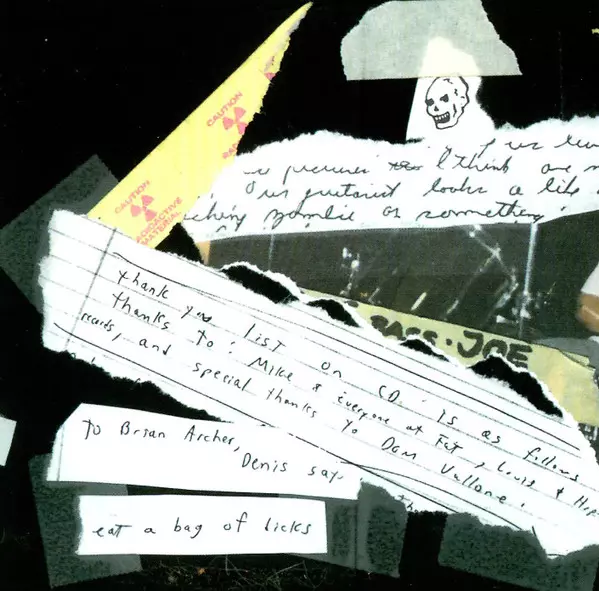 CAUTION
CAUTION
RADIOACTIVE
MATERIAL
pictures I think are
Our guitarist looks a lil
zombie or something
BASS · JOE
thank you list on CD is as follows
thanks to: Mike & everyone at Fat, Louis & Hope
records, and special thanks to Dan Vallone.
to Brian Archer,
Denis says
eat a bag of licks